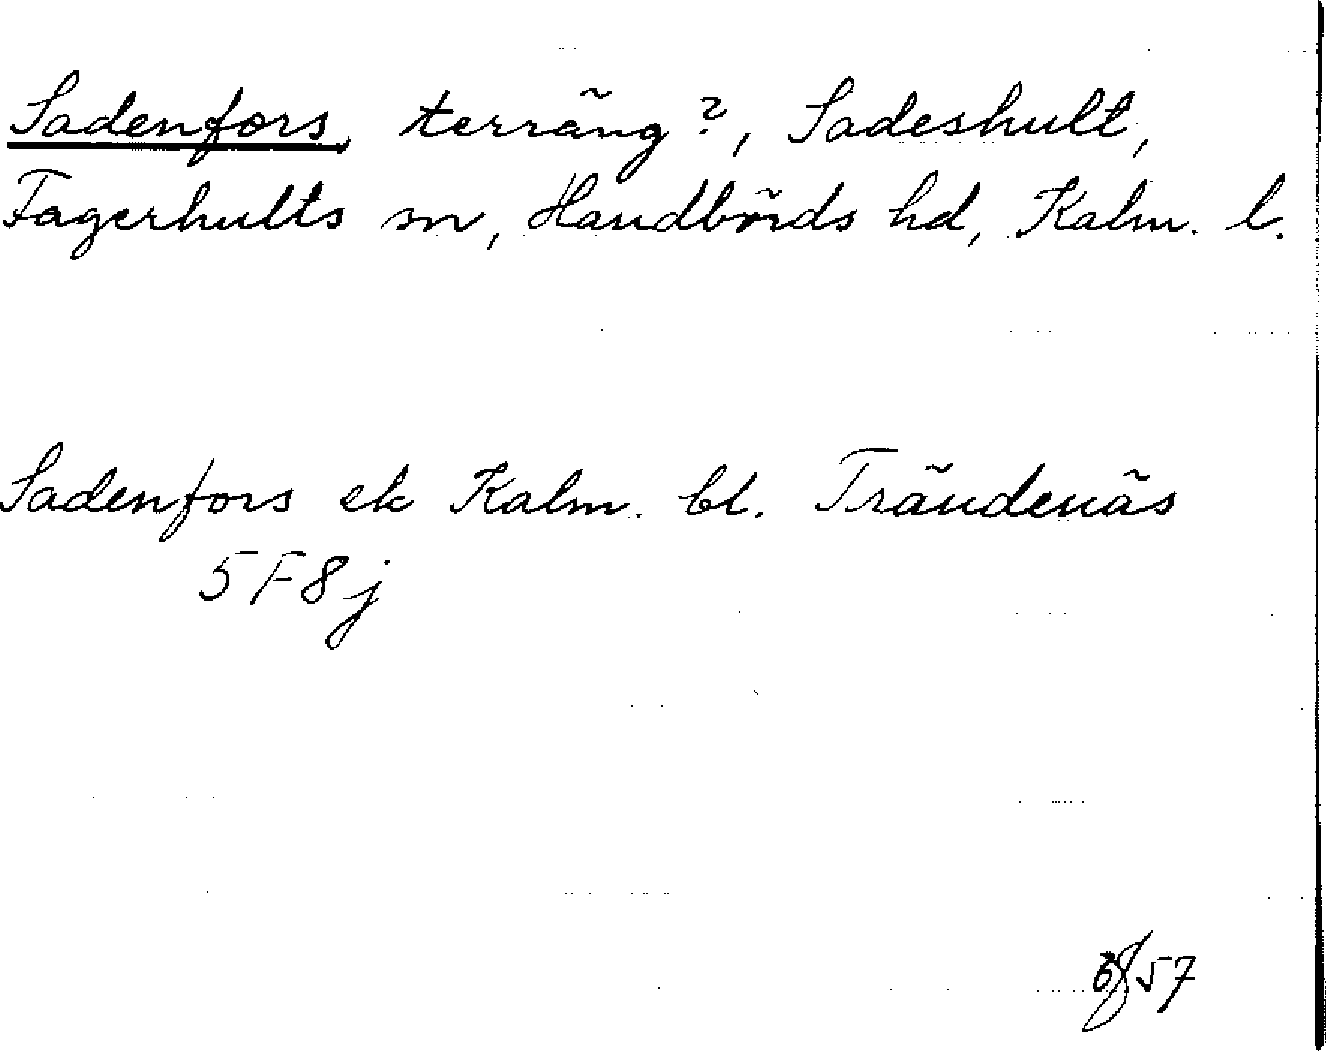 Sadenfors, terräng?, Sadeshult,
Fagerhults sn, Handbörds hd, Kalm. l.
Sadenfors ek Kalm. bl. Trändenäs
5F8j
57